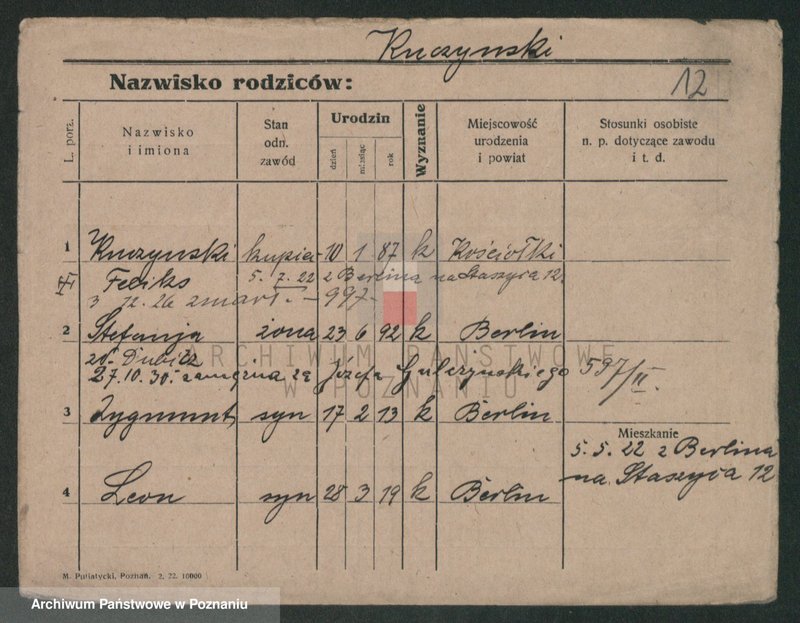 Kuczynski
Nazwisko rodziców:
12
L. porz.
Nazwisko i imiona
Stan odn. zawód
Urodzin
dzień
miesiąc
rok
Wyznanie
Miejscowość urodzenia i powiat
Stosunki osobiste n. p. dotyczące zawodu i t. d.
1 Kuczynski kupiec 10 1 87 k Kościołki
Feliks 5. 7. 22 z Berlina na Staszyca 12.
3 12. 26 zmarł. – 997 –
2 Stefanja żona 23 6 92 k Berlin
ARCHIWUM PAŃSTWOWE
W POZNANIU
27. 10. 30. zamężna za Józefa Gulczyńskiego 597/II.
3 Zygmunt syn 17 2 13 k Berlin
Mieszkanie
5. 5. 22 z Berlina
na Staszyca 12
4 Leon syn 28 3 19 k Berlin
M. Putiatycki, Poznań. 2. 22. 10000
Archiwum Państwowe w Poznaniu